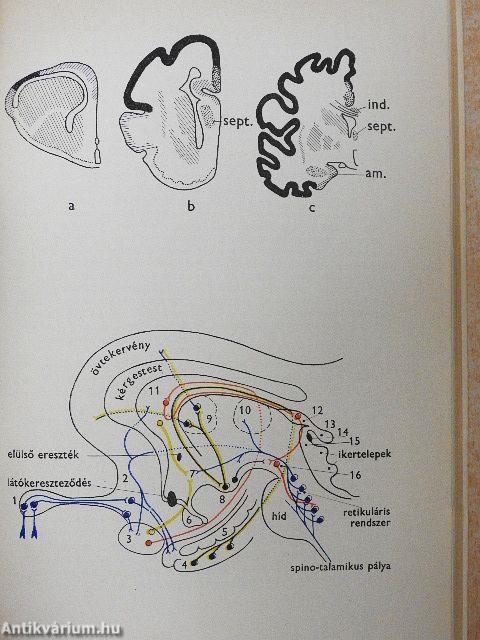 sept.
ind.
sept.
am.
a
b
c
övtekervény
kérgestest
11
9
10
12
13
14
15
ikertelepek
16
elülső ereszték
2
7
látókereszteződés
1
8
retikuláris
rendszer
6
3
5
híd
4
spino-talamikus pálya
Antikvárium.hu